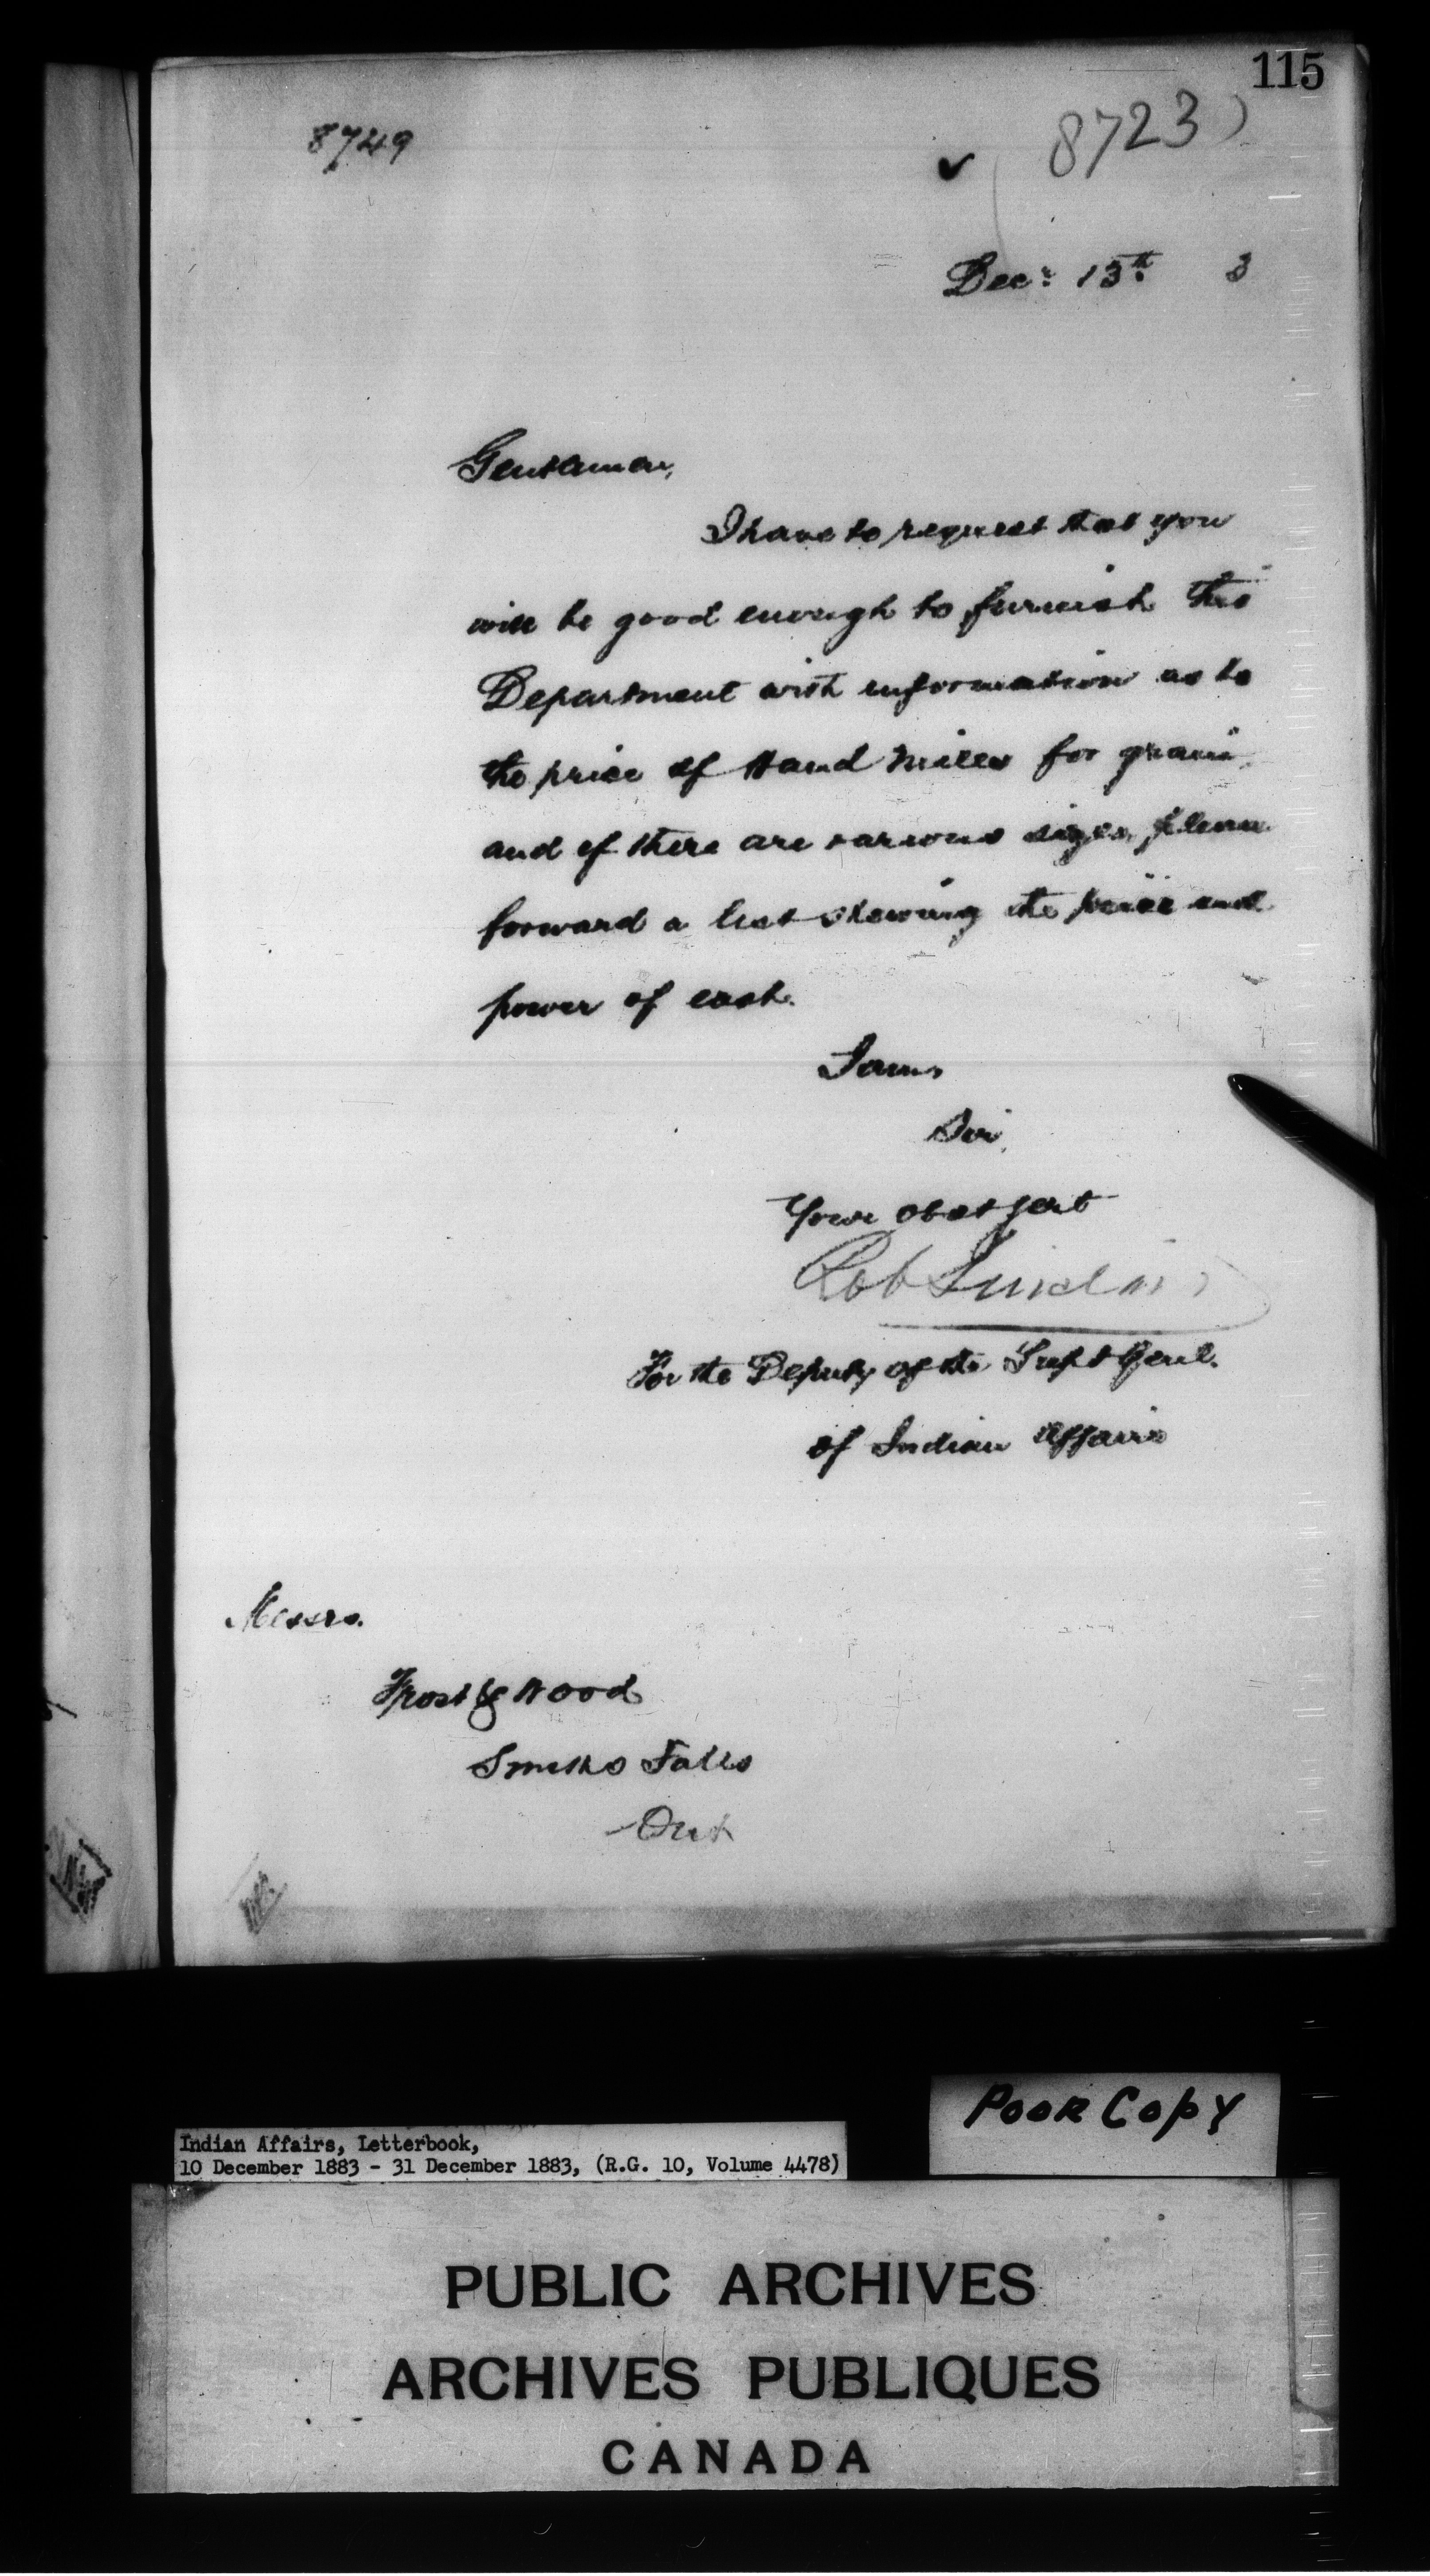 115
8749
8723
Decr 13th 3
Gentlemen,
I have to request that you
will be good enough to furnish this
Department with information as to
the price of Hand Mills for grain,
and if there are various sizes, please
forward a list shewing the price and
power of each.
I am,
Sir,
Your obedt Servt
Rob Sinclair
For the Deputy of the Supt Genl.
of Indian Affairs
Messrs.
Frost & Wood
Smiths Falls
Ont
Poor Copy
Indian Affairs, Letterbook,
10 December 1883 - 31 December 1883, (R.G. 10, Volume 4478)
PUBLIC ARCHIVES
ARCHIVES PUBLIQUES
CANADA